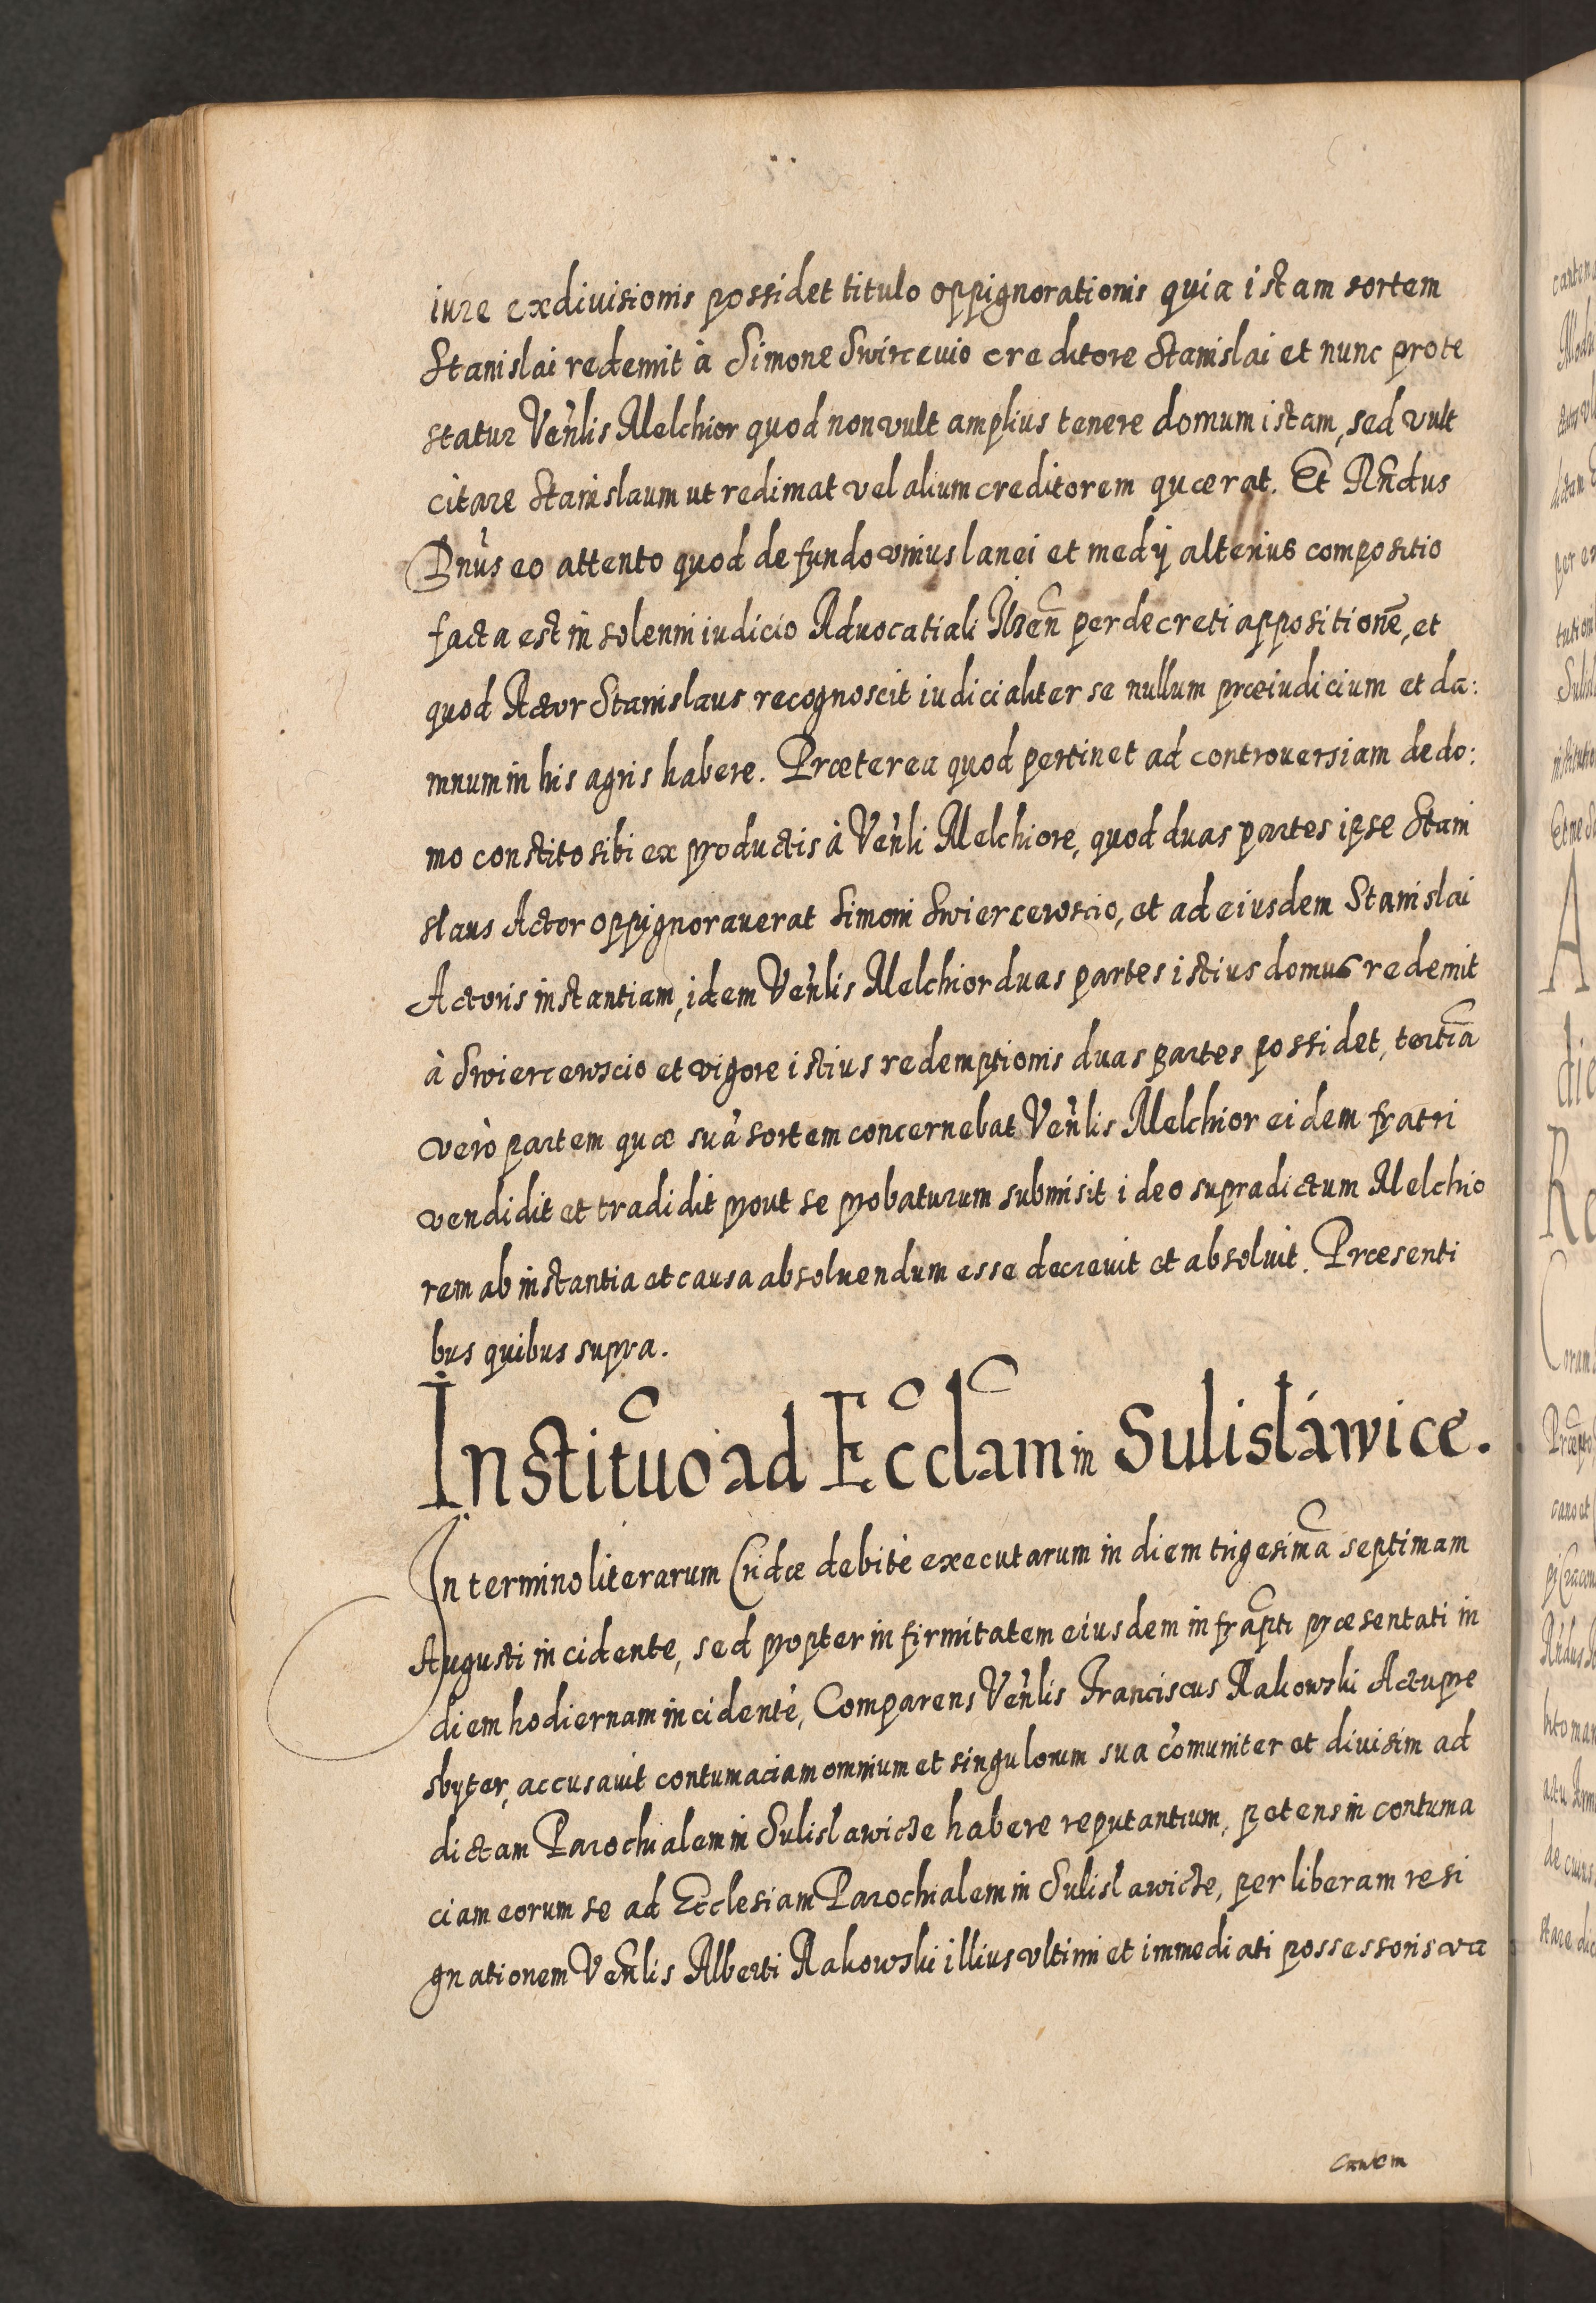 iure ex diuisionis possidet titulo oppignorationis quia istam sortem
Stanislai redemit à Simone Swircevio creditore Stanislai et nunc prote
statur Veñlis Melchior quod non vult amplius tenere domum istam, sed vult
citare Stanislaum ut redimat vel alium creditorem quærat. Et Rñdus
Dñus eo attento quod de fundo vnius lanei et medij alterius compositio
facta est in solenni iudicio Aduocatiali per decreti appositionẽ, et
quod Actor Stanislaus recognoscit iudicialiter se nullum præiudicium et da:
mnum in his agris habere. Præterea quod pertinet ad controuersiam de do:
mo constito sibi ex productis à Veñli Melchiore, quod duas partes ipse Stani
slaus Actor oppignorauerat Simoni Swiercewscio, et ad eiusdem Stanislai
Actoris instantiam, idem Veñlis Melchior duas partes istius domus redemit
à Swiercewscio et vigore istius redemptionis duas partes possidet, tertiã
verò partem quæ suã sortem concernebat Veñlis Melchior eidem fratri
vendidit et tradidit prout se probaturum submisit ideo supradictum Melchio
rem ab instantia et causa absoluendum esse decreuit et absoluit. Præsenti
bus quibus supra.
Instituõ ad Eccl̃am in Sulisláwice.
In termino literarum Cridæ debitè executarum in diem trigesimã septimam
Augusti incidente, sed propter infirmitatem eiusdem infrap̃ti præsentati in
diem hodiernam incidentè, Comparens Veñlis Franciscus Rakowski Actu pre
sbyter, accusauit contumaciam omnium et singulorum sua cõmuniter et diuisim ad
dictam Parochialem in Sulislawicze habere reputantium, petens in contuma
ciam eorum se ad Ecclesiam Parochialem in Sulislawicze, per liberam resi
gnationem Veñlis Alberti Rakowski illius vltimi et immediati possessoris va
cantem